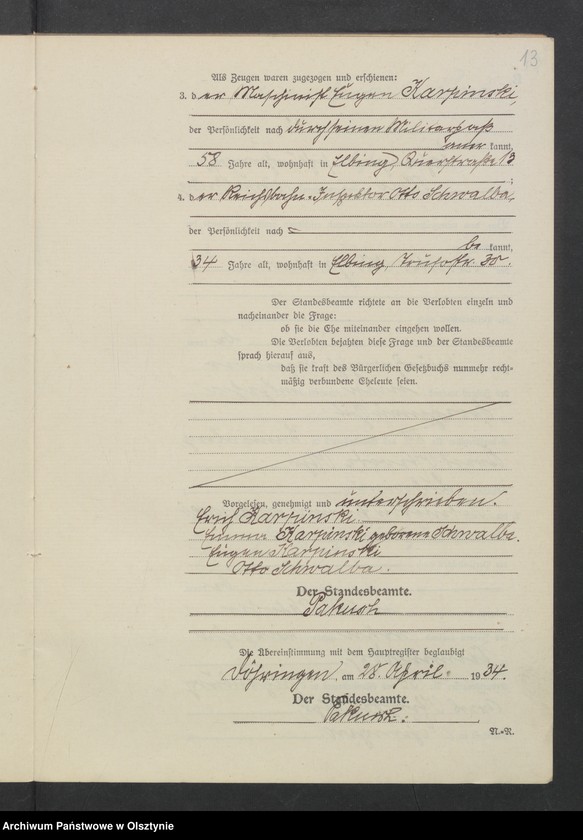 13
Als Zeugen waren zugezogen und erschienen:
3. der Maschinist Eugen Karpinski,
der Persönlichkeit nach durch seinen Militärpaß
aner kannt,
58 Jahre alt, wohnhaft in Elbing, Querstraße 13
;
4. der Reichsbahn-Inspektor Otto Schwalba,
der Persönlichkeit nach
be kannt,
34 Jahre alt, wohnhaft in Elbing, Trusostr 30.
Der Standesbeamte richtete an die Verlobten einzeln und
nacheinander die Frage:
ob sie die Ehe miteinander eingehen wollen.
Die Verlobten bejahten diese Frage und der Standesbeamte
sprach hierauf aus,
daß sie kraft des Bürgerlichen Gesetzbuchs nunmehr recht-
mäßig verbundene Eheleute seien.
Vorgelesen, genehmigt und unterschrieben.
Erich Karpinski.
Emma Karpinski geborene Schwalba.
Eugen Karpinski
Otto Schwalba.
Der Standesbeamte.
Pakusch
Die Übereinstimmung mit dem Hauptregister beglaubigt
Döhringen, am 28. April 1934.
Der Standesbeamte.
Pakusch.
N.-R.
Archiwum Państwowe w Olsztynie